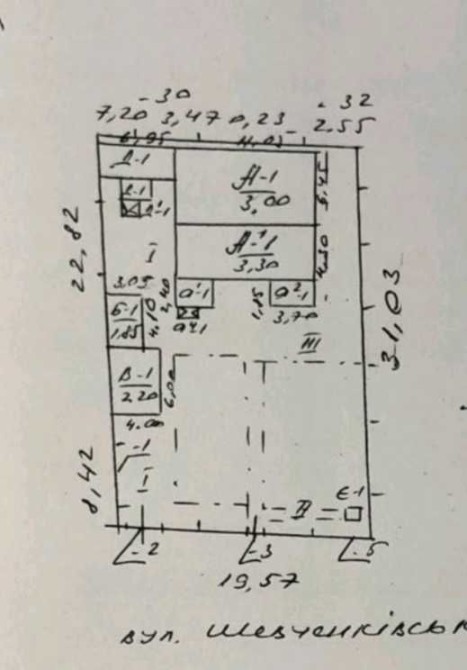 30 32
7,20 3,47 0,23 2,55
6,95
Д-1
А-1
3,00
5,45
Г-1
22,82
А¹-1
3,30
4,30
І
3,05
2,40
а¹-1
а²-1
1,85
3,70
Б-1
1,85
4,10
ІІІ
31,03
В-1
2,20
6,00
4.00
8,42
-1
І
Є-1
ІІ
-2
-3
-5
19,57
вул. Шевченківськ